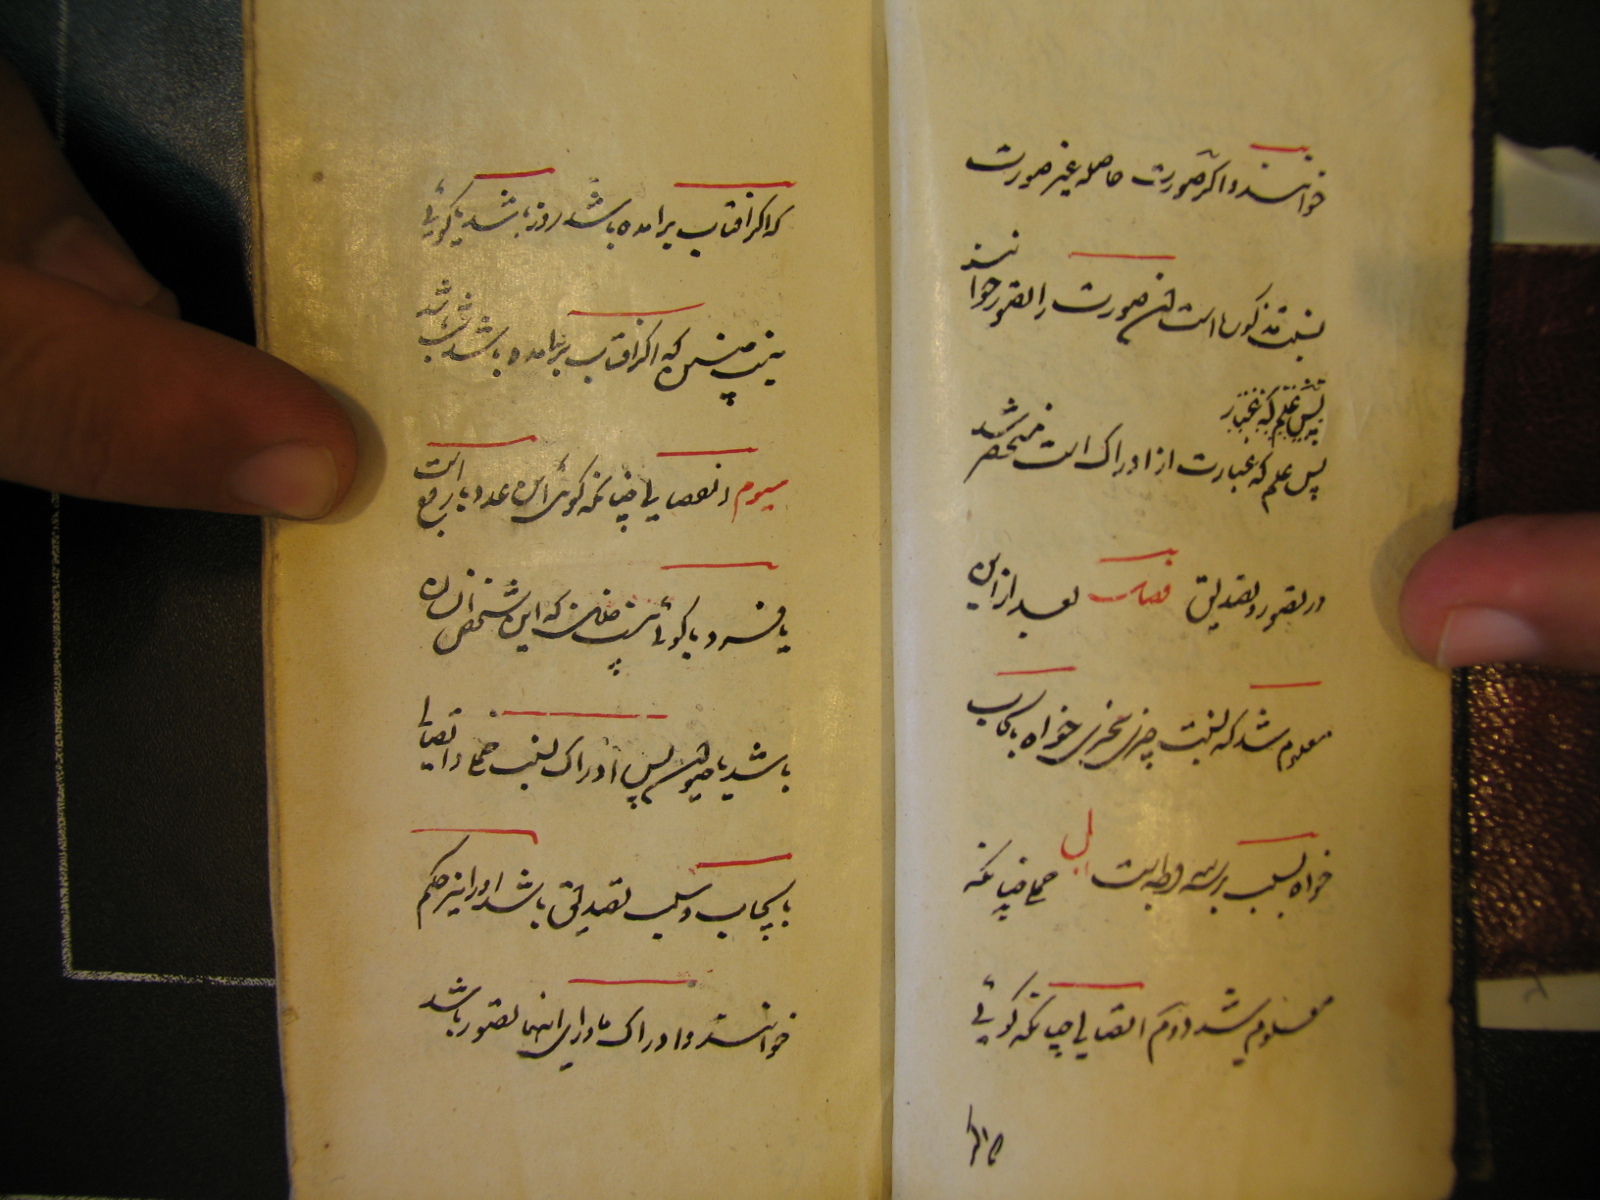 خوانند و اگر صورت حاصله غیر صورت
نسبت مذکوره است آن صورت را تصور خوانند
پس علم که عبارت
پس علم که عبارت از ادراک است منحصر شد
در تصور و تصدیق فصل بعد از این
معلوم شد که نسبت چیزی بچیزی خواه بایجاب
خواه بسلب بر سه وجه است اول حملی چنانکه
معلوم شد دوم اتصالی چنانکه گوئی
که اگر
که اگر آفتاب برآمده باشد روز باشد یا گوئی
نیست چنین که اگر آفتاب برآمده باشد شب باشد
سیوم انفصالی چنانکه گوئی این عدد یا زوج است
یا فرد یا گوئی نیست چنان که این شخص انسان
باشد یا حیوان پس ادراک نسبت حملی و اتصالی
بایجاب و سلب تصدیق باشد و او را نیز حکم
خوانند و ادراک ماورای اینها تصور باشد